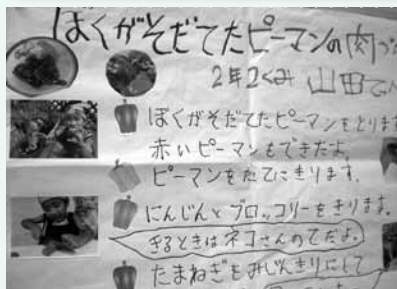 ぼくがそだてたピーマンの肉づ
2年2くみ 山田
ぼくがそだてたピーマンをとります
赤いピーマンもできたよ。
ピーマンをたてにきります。
にんじんとブロッコリーをきります。
きるときはネコさんのてだよ。
たまねぎをみじんきりにして